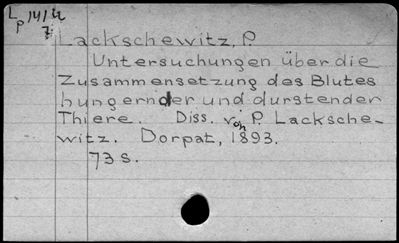 Lackschewitz, P.
Untersuchungen über die
Zusammensetzung des Blutes
hungernder und durstender
Thiere. Diss. von P. Lacksche-
witz. Dorpat, 1893.
73 s.